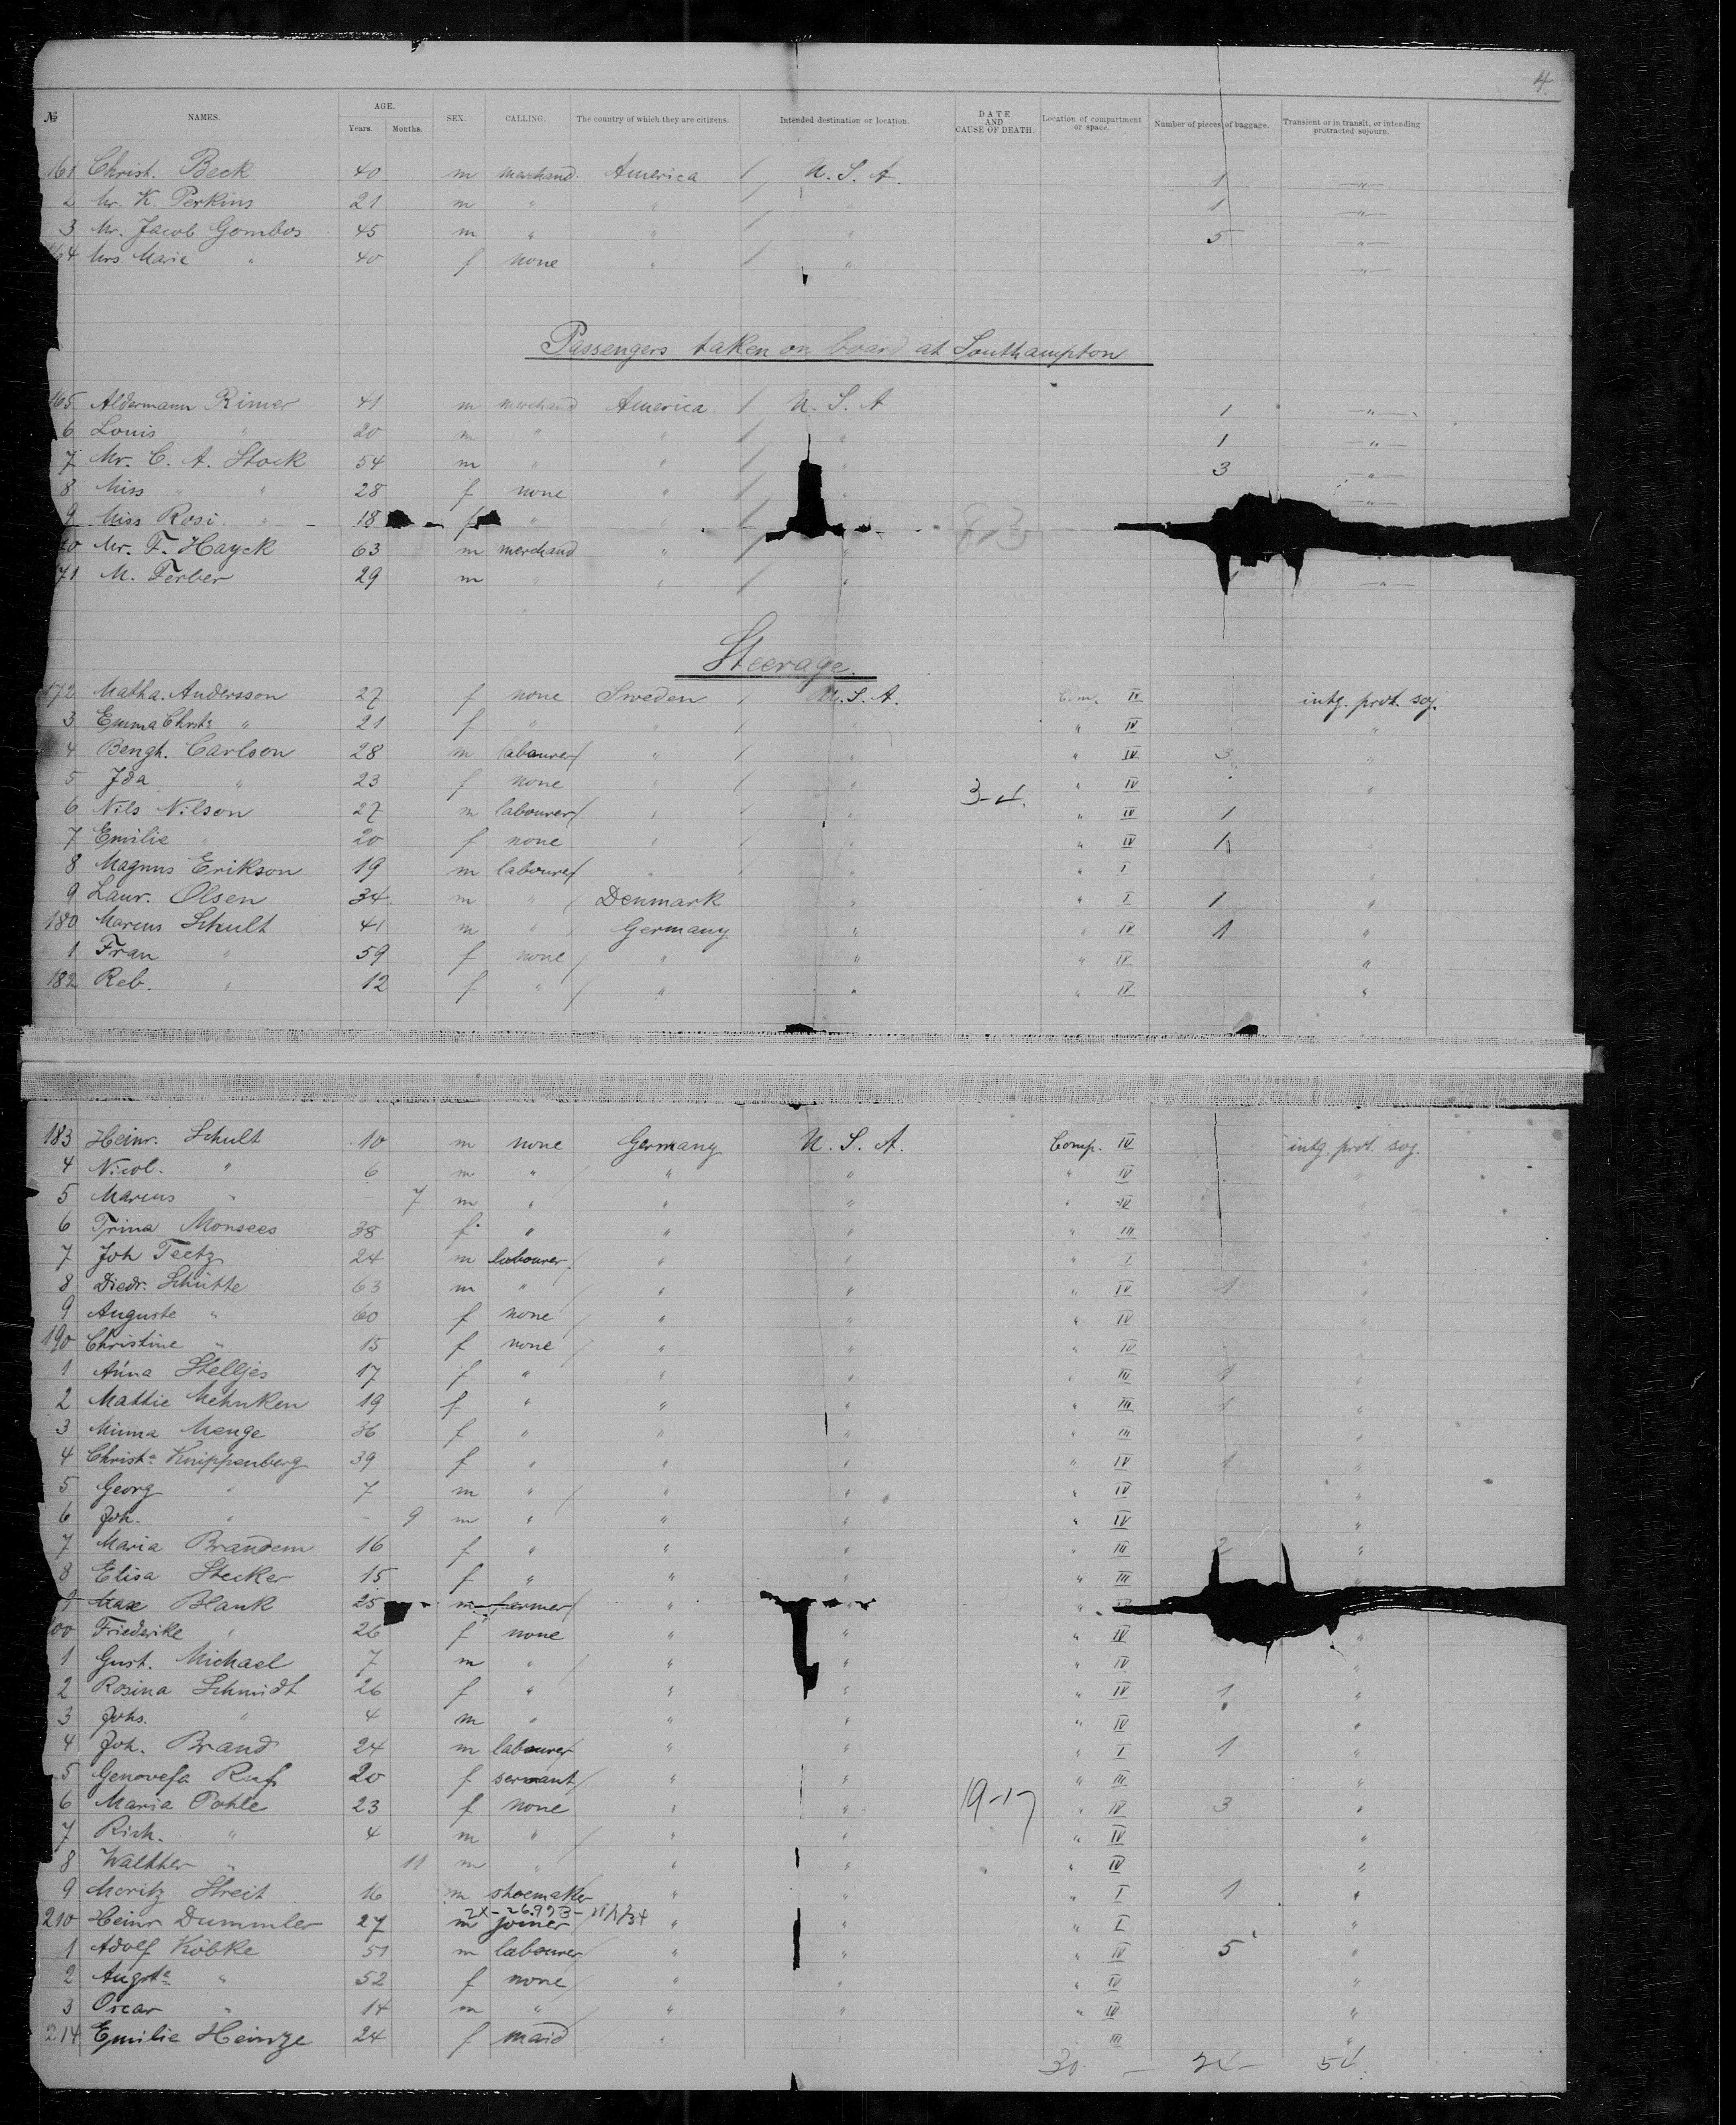 4
№ NAMES. AGE. Years. Months. SEX. CALLING. The country of which they are citizens. Intended destination or location. DATE AND CAUSE OF DEATH. Location of compartment or space. Number of pieces of baggage. Transient or in transit, or intending protracted sojourn.
161 Christ. Beck 40 m merchand. America / U. S. A. 1 —"—
2 Mr. K. Perkins 21 m " " / " 1 —"—
3 Mr. Jacob Gombos 45 m " " / " 5 —"—
164 Mrs. Marie " 40 f none " / " —"—
Passengers taken on board at Southampton
165 Aldermann Rimer 41 m merchand America / U. S. A 1 —"—
6 Louis " 20 m " " / " 1 —"—
7 Mr. C. A. Stock 54 m " " / " 3 —"—
8 Miss " " 28 f none " / " —"—
9 Miss Rosi " 18 f " " /
70 Mr. F. Hayek 63 m merchand " / "
71 M. Ferber 29 m " " / " —"—
Steerage.
172 Matha. Andersson 27 f none Sweden / U. S. A. Com. IV intg. prot. soj.
3 Emma Christe " 21 f " " / " " IV "
4 Bengh. Carlson 28 m labourer/ " / " " IV 3 "
5 Ida " 23 f none " / " " IV "
6 Nils Nilson 27 m labourer/ " / " 3-4. " IV 1 "
7 Emilie " 20 f none " / " " IV 1 "
8 Magnus Erikson 19 m labourer/ " / " " I "
9 Laur. Olsen 34 m " / Denmark " " I 1 "
180 Marcus Schult 41 m " / Germany " " IV 1 "
1 Fran " 59 f none / " " " IV "
182 Reb. " 12 f " / " " " IV "
183 Heinr. Schult 10 m none Germany U. S. A. Comp. IV intg. prot. soj.
4 Nicol. " 6 m " / " " " IV "
5 Marcus " 7 m " " " " IV "
6 Trina Monsees 38 f " " " " III "
7 Joh Teetz 24 m labourer/ " " " I "
8 Diedr. Schütte 63 m " / " " " IV 1 "
9 Auguste " 60 f none / " " " IV "
190 Christine " 15 f none / " " " IV "
1 Anna Stelljes 17 f " " " " III 1 "
2 Mattie Mehnken 19 f " " " " III 1 "
3 Minna Menge 36 f " " " " III "
4 Christe Knippenberg 39 f " " " " IV 1 "
5 Georg " 7 m " / " " " IV "
6 Joh. " - 9 m " " " " IV "
7 Maria Brandem 16 f " " " " III 2 "
8 Elisa Stecker 15 f " " " " III "
9 Max Blank 25 m farmer/ " "
00 Friederike " 26 f none " " " IV "
1 Gust. Michael 7 m " / " " " IV "
2 Rosina Schmidt 26 f " " " " IV 1 "
3 Johs. " 4 m " " " " IV "
4 Joh. Brand 24 m labourer " " " I 1 "
5 Genovefa Ruf 20 f servant/ " " " III "
6 Maria Pohle 23 f none " " 19-17 " IV 3 "
7 Rich. " 4 m " / " " " IV "
8 Walther " 11 m " / " " " IV "
9 Moritz Streit 16 m shoemaker " " " I 1 "
210 Heinr Dummler 27 m joiner/ " " " I "
1 Adolf Köbke 51 m labourer/ " " " IV 5 "
2 Augste " 52 f none/ " " " IV "
3 Oscar " 14 m " / " " " IV "
214 Emilie Heinze 24 f maid " III "
30 — 24 — 54.